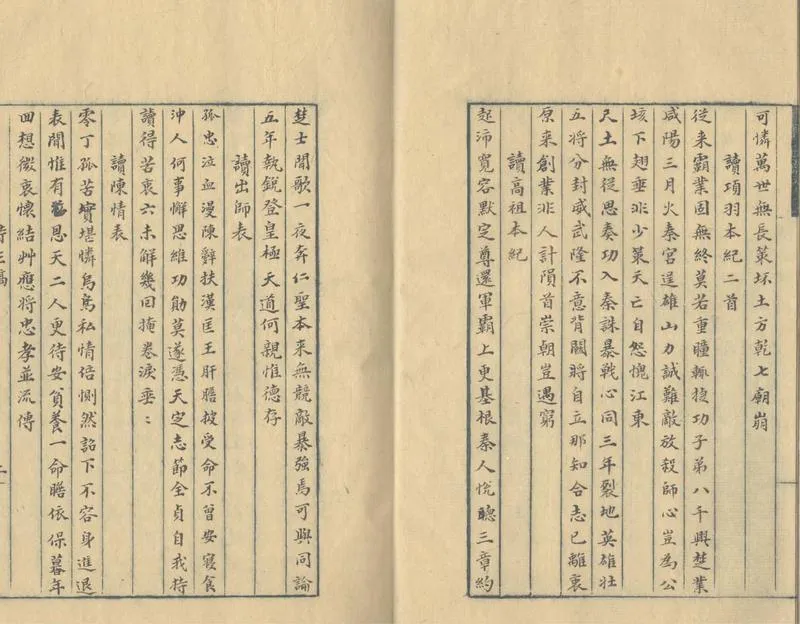 可憐萬世無長策坏土方乾七廟崩
讀項羽本紀二首
從来霸業固無終莫若重瞳輒捷功子弟八千興楚業
咸陽三月火秦宮逞雄山力誠難敵放殺師心豈為公
垓下翅垂非少策天亡自怨愧江東
尺土無從思奏功入秦誅暴戰心同三年裂地英雄壮
五將分封威武隆不意背關將自立那知合志已離衷
原来創業非人計隕首崇朝豈遇窮
讀高祖本紀
起沛寬容默定尊還軍霸上更基根秦人悅聽三章約
楚士聞歌一夜奔仁聖本来無競敵暴強焉可與同論
五年執銳登皇極天道何親惟德存
讀出師表
孤忠泣血漫陳辭扶漢匡王肝膽披受命不曾安寢食
沖人何事懈思維功勛莫遂憑天定志節全貞自我持
讀得苦衷六未解幾回掩卷淚垂〻
讀陳情表
零丁孤苦實堪憐烏鳥私情倍惻然詔下不容身進退
表聞惟有恩天二人更待安貧養一命瞻依保暮年
回想微衷懷結艸應將忠孝並流傳